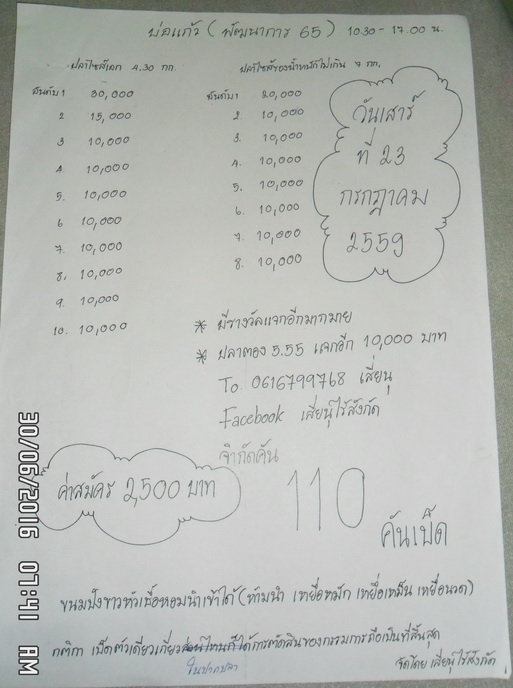 บ่อแก้ว (พัฒนาการ 65) 10.30 - 17.00 น.
ปลาไซส์เอก 4.30 กก.
อันดับ 1 30,000
2 15,000
3 10,000
4. 10,000
5. 10,000
6 10,000
7. 10,000
8. 10,000
9. 10,000
10. 10,000
ปลาไซส์รองน้ำหนักไม่เกิน 7 กก.
อันดับ 1 20,000
2. 10,000
3. 10,000
4. 10,000
5. 10,000
6. 10,000
7. 10,000
8. 10,000
วันเสาร์
ที่ 23
กรกฎาคม
2559
* มีรางวัลแจกอีกมากมาย
* ปลาตอง 5.55 แจกอีก 10,000 บาท
To. 0616799768 เสี่ยนุ
Facebook เสี่ยนุ ไร้สังกัด
จำกัดคัน
110
คันเบ็ด
ค่าสมัคร 2,500 บาท
ขนมปังขาวหัวเชื้อหอมนำเข้าได้ (ห้ามนำ เหยื่อหมัก เหยื่อเหม็น เหยื่อนวด)
กติกา เบ็ดตัวเดียวเกี่ยวส่วนไหนก็ได้การตัดสินของกรรมการถือเป็นที่สิ้นสุด
ในปากปลา
จัดโดย เสี่ยนุ ไร้สังกัด
30/06/2016 07:41 AM